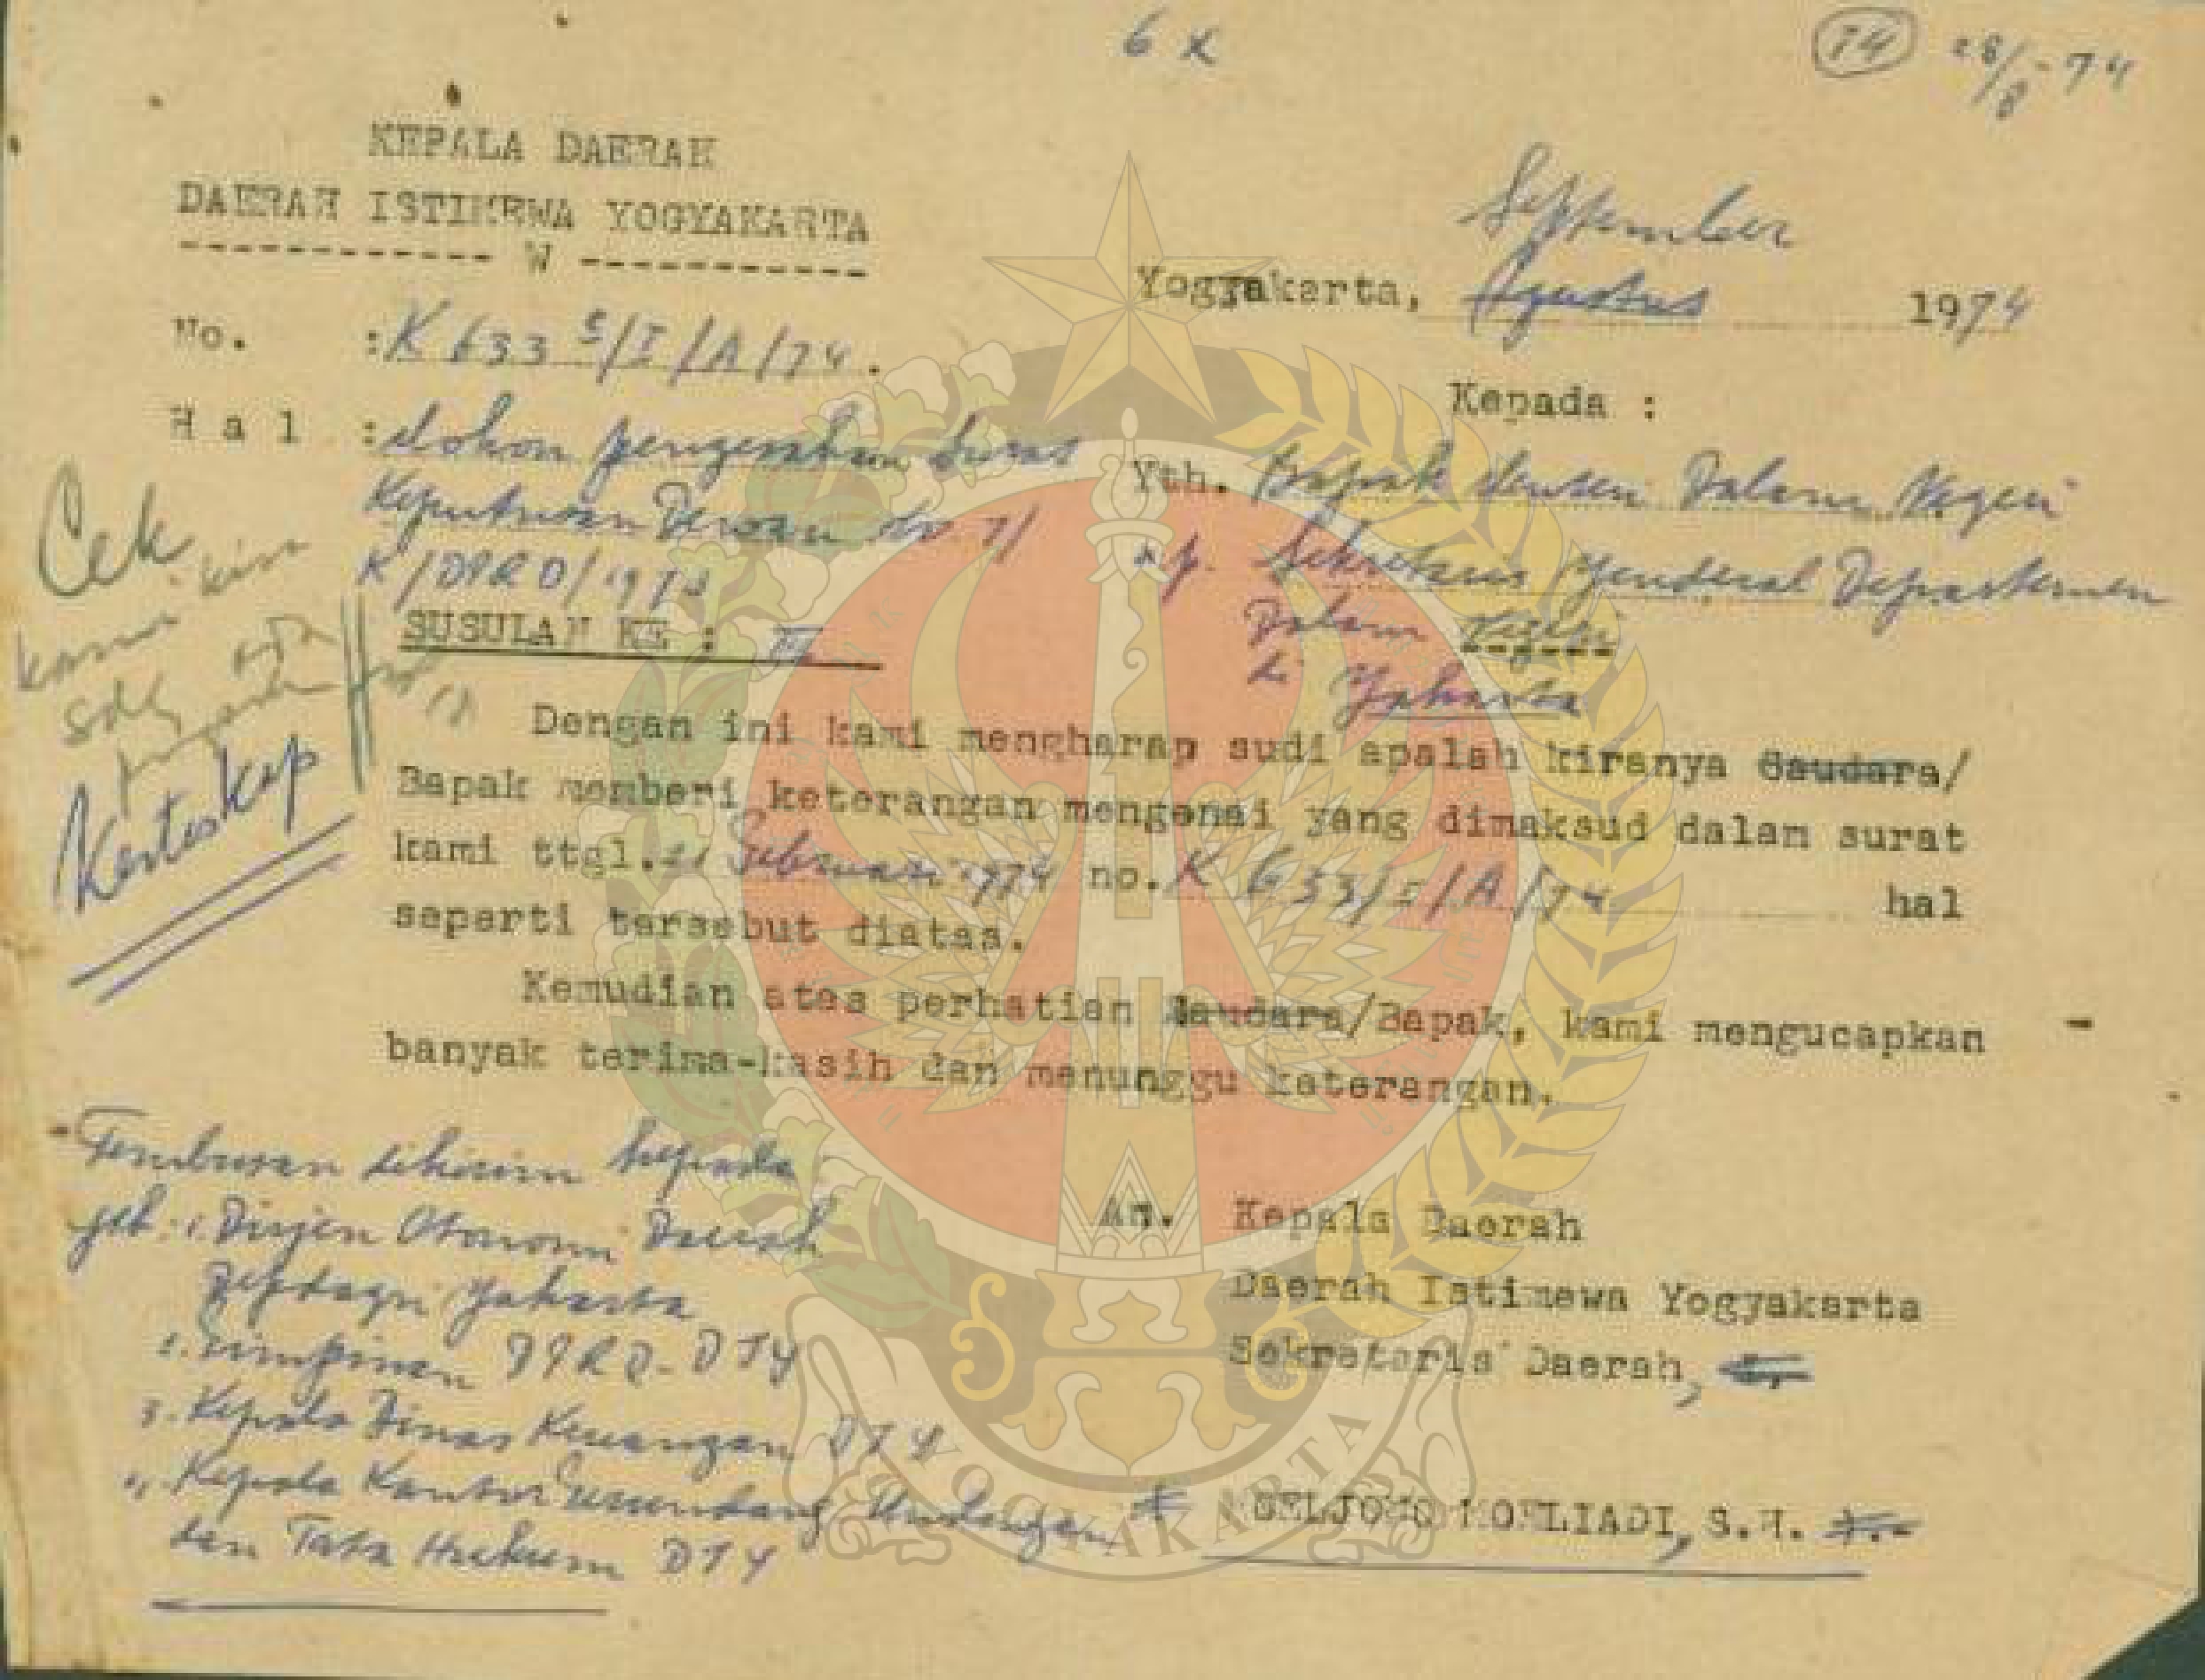 6 x
74 28/8-74
KEPALA DAERAH
DAERAH ISTIMEWA YOGYAKARTA
------------ W -----------
September
Yogyakarta, Agustus 1974
No. : K 633 5/I/A/74.
Kepada :
H a l : Mohon pengesahan surat
Keputusan Dewan no 7/
K/DPRD/19
Yth. Bapak Menteri Dalam Negeri
Sekretaris Jenderal Departemen
Dalam Negeri
di Jakarta
SUSULAN KE : III
Cek
kami
Kertas Kap
Dengan ini kami mengharap sudi apalah kiranya Saudara/
Bapak memberi keterangan mengenai yang dimaksud dalam surat
kami ttgl. Februari 1974 no. K 633/I/A/74 hal
seperti tersebut diatas.
Kemudian atas perhatian Saudara/Bapak, kami mengucapkan
banyak terima-kasih dan menunggu keterangan.
- Tembusan dikirim kepada
yth: 1. Dirjen Otonomi Daerah
Depdagri Jakarta
2. Pimpinan DPRD-DIY
3. Kepala Dinas Keuangan DIY
4. Kepala Kantor Perundang Undangan
dan Tata Hukum DIY
An. Kepala Daerah
Daerah Istimewa Yogyakarta
Sekretaris Daerah,
MOELJONO MOELIADI, S.H.
YOGYAKARTA